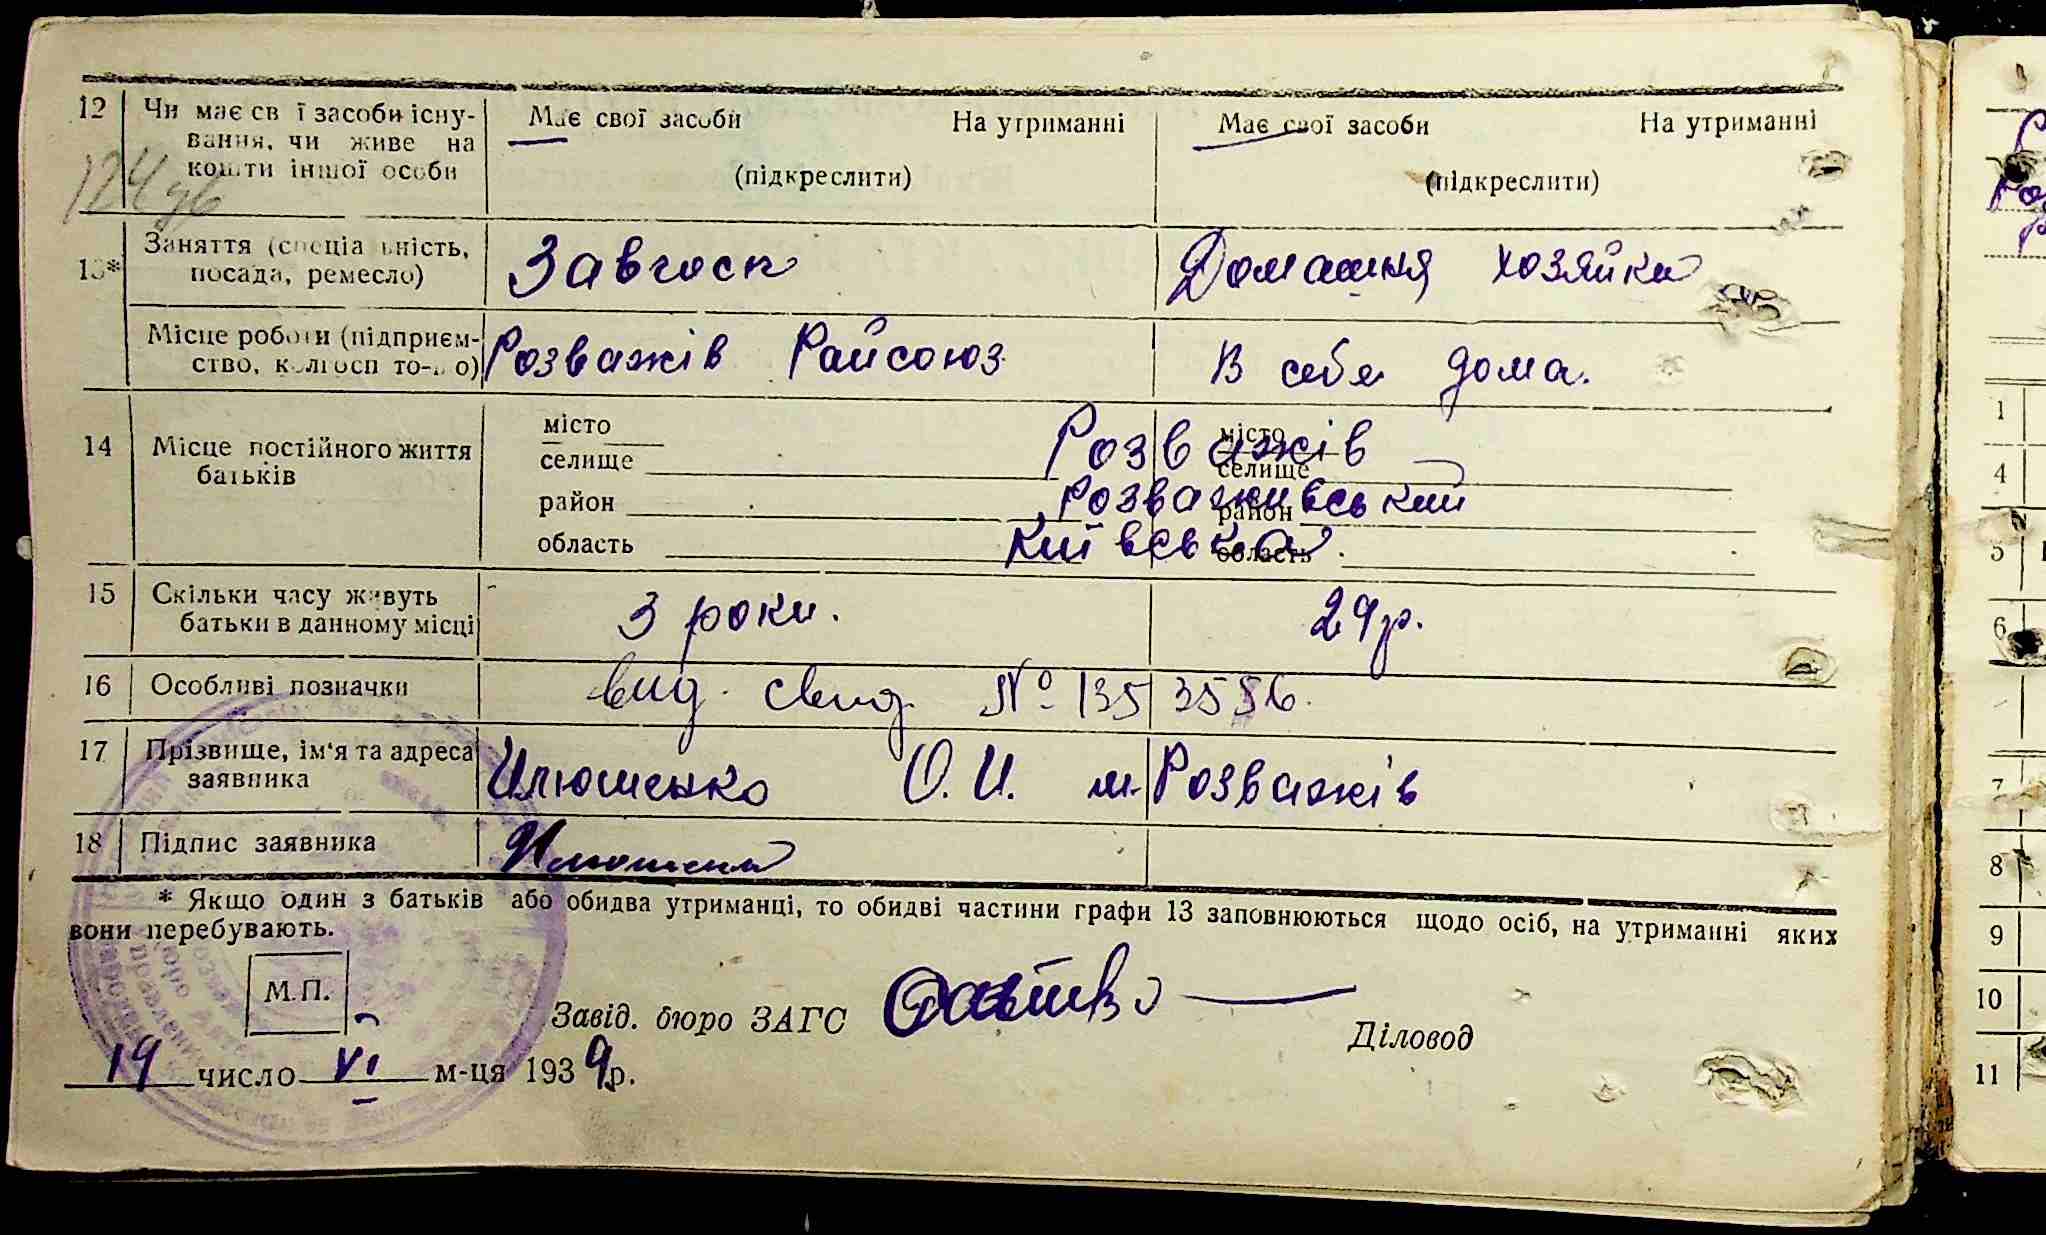 12 Чи має св ї засоби існу- Має свої засоби На утриманні Має свої засоби На утриманні
вання, чи живе на
кошти іншої особи (підкреслити) (підкреслити)
124
13* Заняття (спеціа ьність, Завгосп Домашня хозяйка
посада, ремесло)
Місце роботи (підприєм- Розважів Райсоюз В себе дома.
ство, колгосп то-що)
14 Місце постійного життя місто Розважів місто
батьків селище селище
район Розваживський район
область Київська область
15 Скільки часу живуть 3 роки. 29р.
батьки в данному місці
16 Особливі позначки вид. свид. № 1353556.
17 Прізвище, ім'я та адреса Илюшенко О. И. м. Розважів
заявника
18 Підпис заявника Илюшенко
* Якщо один з батьків або обидва утриманці, то обидві частини графи 13 заповнюються щодо осіб, на утриманні яких
вони перебувають.
М.П.
Завід. бюро ЗАГС
Діловод
19 число VI м-ця 1939р.
1
4
5
6
7
8
9
10
11